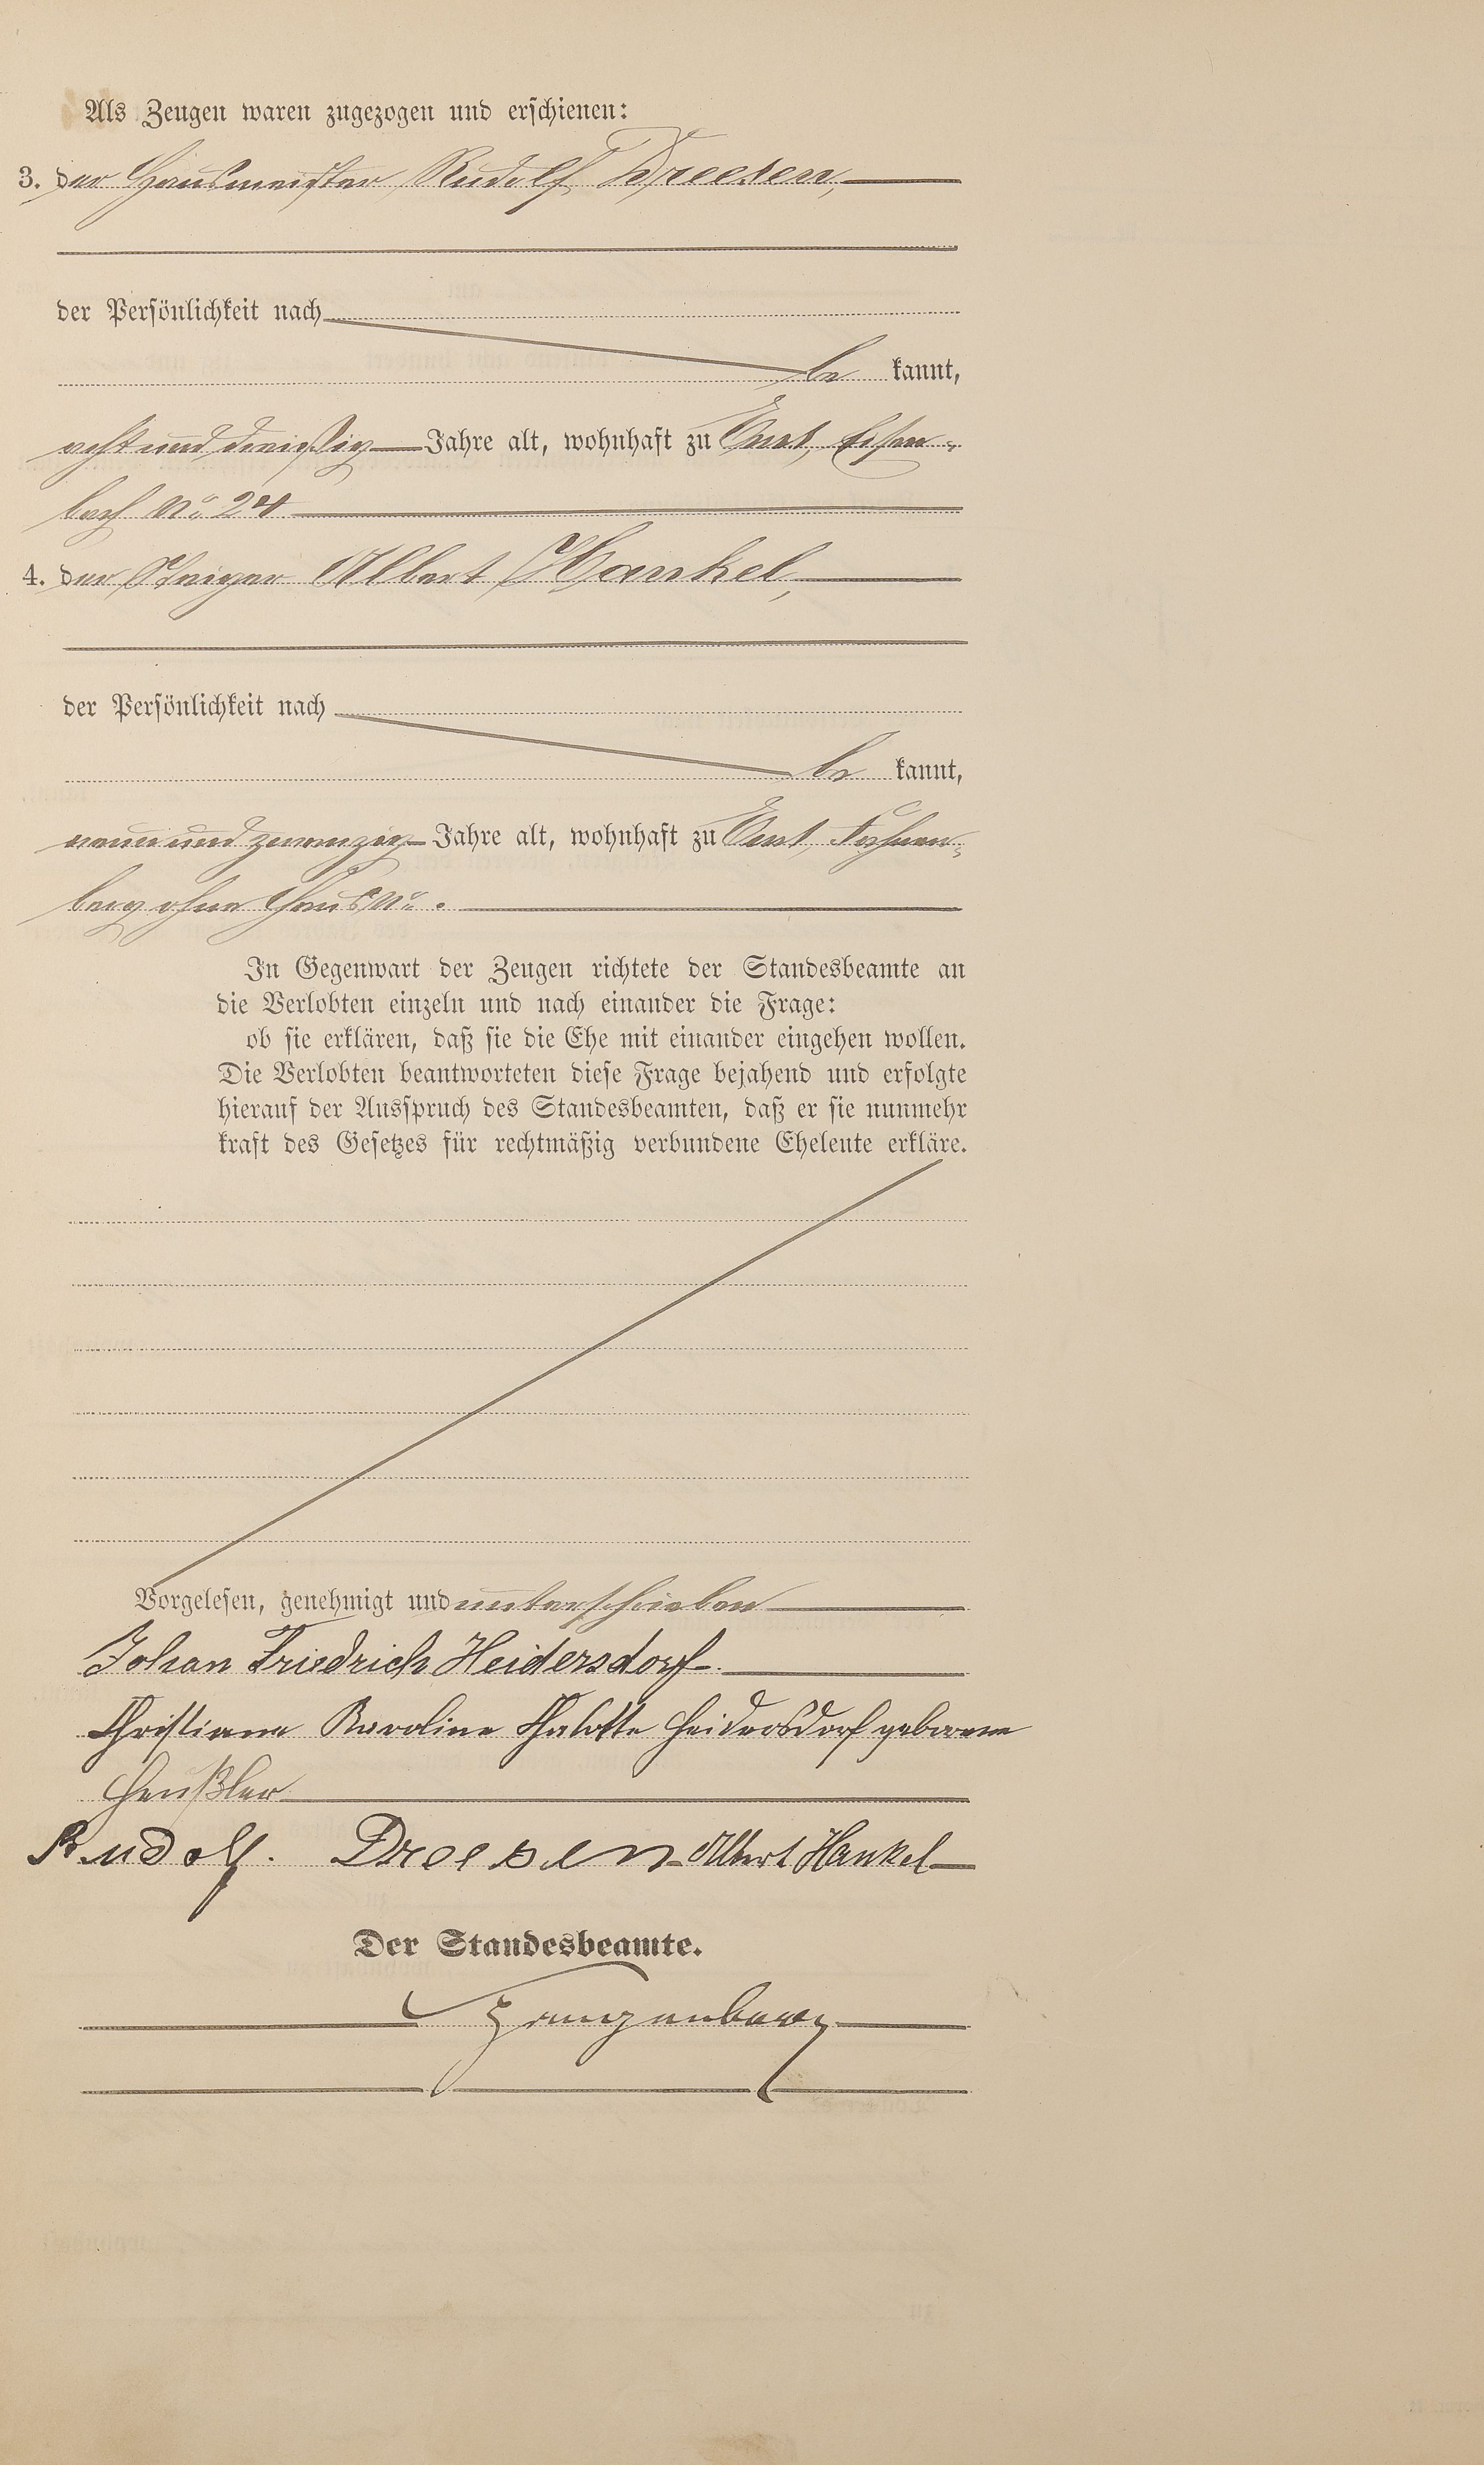 Als Zeugen waren zugezogen und erschienen:
3. der Hausmeister Rudolf Dreesen,
der Persönlichkeit nach
be kannt,
acht und dreißig Jahre alt, wohnhaft zu
bach No. 24
4. der Steiger Albert Hankel,
der Persönlichkeit nach
be kannt,
neun und zwanzig Jahre alt, wohnhaft zu
berg ohne Haus No.
In Gegenwart der Zeugen richtete der Standesbeamte an
die Verlobten einzeln und nach einander die Frage:
ob sie erklären, daß sie die Ehe mit einander eingehen wollen.
Die Verlobten beantworteten diese Frage bejahend und erfolgte
hierauf der Ausspruch des Standesbeamten, daß er sie nunmehr
kraft des Gesetzes für rechtmäßig verbundene Eheleute erkläre.
Vorgelesen, genehmigt und unterschrieben
Johan Friedrich Heidersdorf.
Christiane Karoline Chalotte Heidersdorf geborene
Heußler
Rudolf. Dreesen Albert Hankel
Der Standesbeamte.